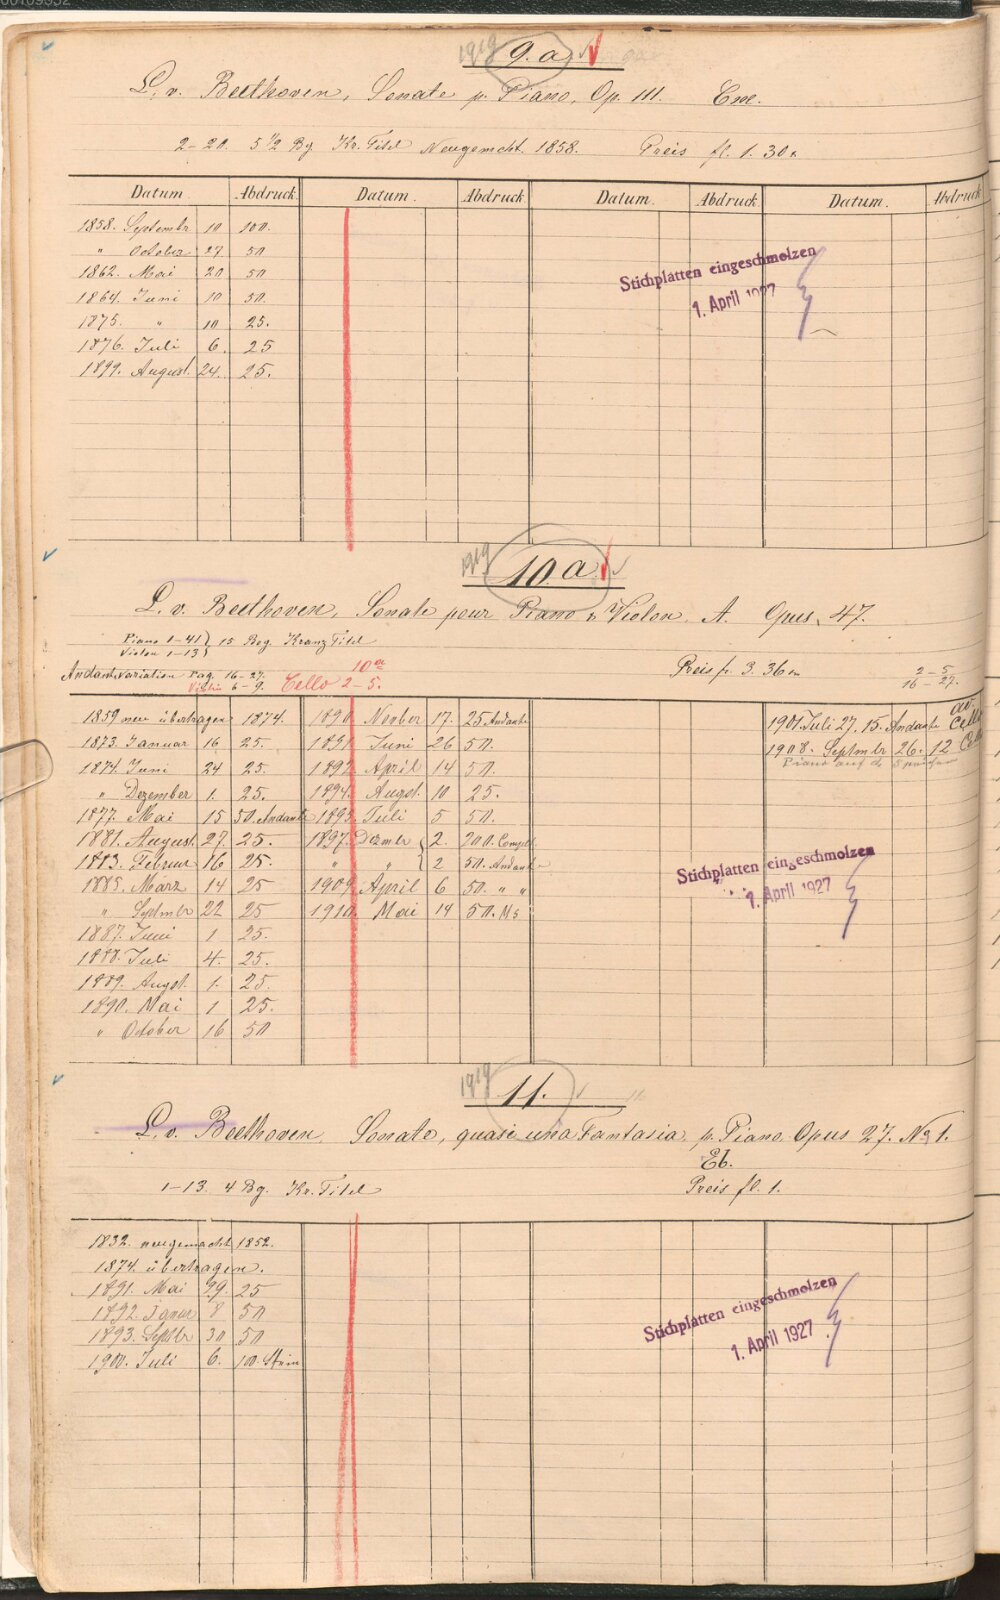 1919 9.a
L. v. Beethoven, Sonate p. Piano, Op. 111. Cm.
2–20. 5 1/2 Bg Kr. Titel Neugemcht. 1858. Preis fl. 1. 30
Datum Abdruck Datum. Abdruck Datum. Abdruck. Datum. Abdruck
1858. Septembr 10 100.
" October 27 50
1862. Mai 20 50
1864. Juni 10 50.
1875. " 10 25.
1876. Juli 6. 25
1899. August. 24. 25.
Stichplatten eingeschmolzen
1. April 1927
1919 10.a
L. v. Beethoven, Sonate pour Piano & Violon. A. Opus. 47.
Piano 1–41 } 15 Bog. Kranz Titel
Violon 1–13
Andant. variation Pag. 16–27. 10a Preis fl. 3. 36 2–5
Violin 6–9. Cello 2–5. 16–27.
1859 neu übertragen 1874. 1890 Novber 17. 25 Andante 1901. Juli 27. 15. Andante Cello
1873. Januar 16 25. 1891 Juni 26 50. 1908. Septmbr 26. 12
1874. Juni 24 25. 1892. April 14 50. Piano auf d.
" Dezember 1. 25. 1894. Augst. 10 25.
1877. Mai 15 50. Andante 1895. Juli 5 50.
1881. August 27. 25. 1897. Dezmbr { 2. 200. Complt
1883. Februr 16 25. " " 2 50. Andante
1885. März 14 25 1909. April 6 50. " "
" Septmbr 22 25 1910. Mai 14 50. Ms
1887. Juni 1 25.
1888. Juli 4. 25.
1889. Augst. 1. 25.
1890. Mai 1 25.
" October 16 50
Stichplatten eingeschmolzen
1. April 1927
1919 11.
L. v. Beethoven, Sonate, quasi una Fantasia, p. Piano. Opus 27. No 1.
Eb.
1–13. 4 Bg. Kr. Titel Preis fl. 1.
1832. neugemacht 1852.
1874. übertragen.
1891. Mai 29. 25
1892 Janur 8 50
1893. Septbr 30 50
1900. Juli 6. 100. Stein
Stichplatten eingeschmolzen
1. April 1927.